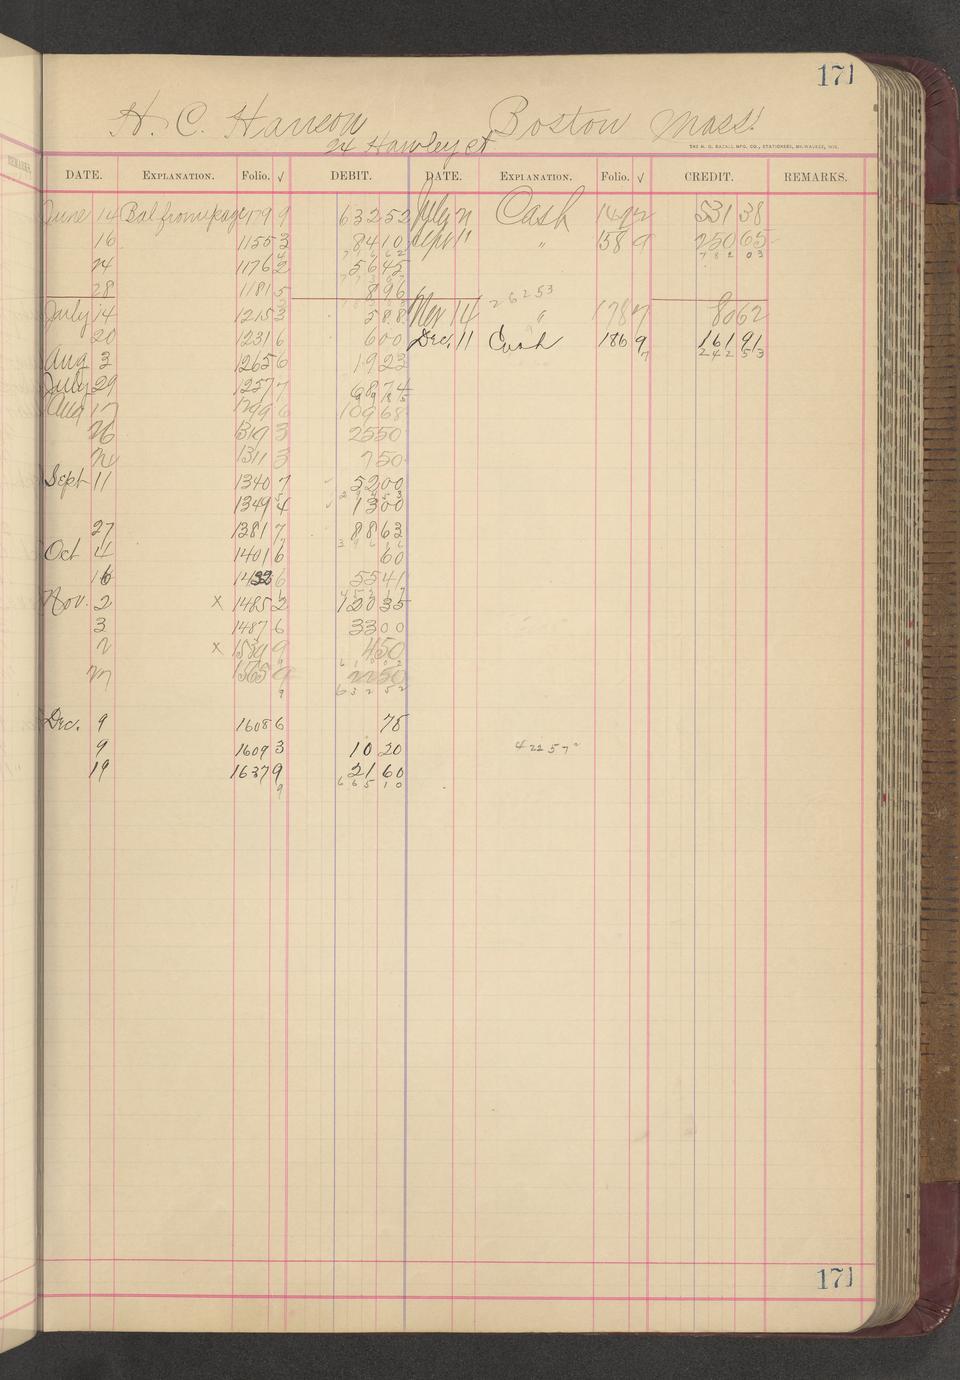 171
H. C. Hanson Boston Mass.
24 Hawley st
THE H. G. RAZALL MFG. CO., STATIONERS, MILWAUKEE, WIS.
REMARKS.
DATE. EXPLANATION. Folio. √ DEBIT. DATE. EXPLANATION. Folio. √ CREDIT. REMARKS.
June 14 Bal from page 179 9 632 52 July 21 Cash 149 2 531 38
16 1155 3 84 10 Sept 11 " 158 9 250 65
782 03
24 1176 2 56 45
28 1181 5 8 96 262 53
July 14 1215 3 5 88 Nov 14 " 178 7 80 62
20 1231 6 6 00 Dec. 11 Cash 186 9 161 91
7 242 53
Aug 3 1265 6 19 23
July 29 1257 7 68 74
Aug 17 1299 6 109 68
26 1319 3 25 50
24 1311 3 7 50
Sept 11 1340 7 52 00
1349 4 13 00
27 1381 7 88 63
Oct 4 1401 6 60
16 1433 6 55 41
Nov. 2 x 1485 2 120 35
3 1487 6 33 00
2 x 1539 9 4 50
27 1565 9 22 50
9 632 52
Dec. 9 1608 6 78
9 1609 3 10 20 422 57
19 1637 9 21 60
9 665 10
171